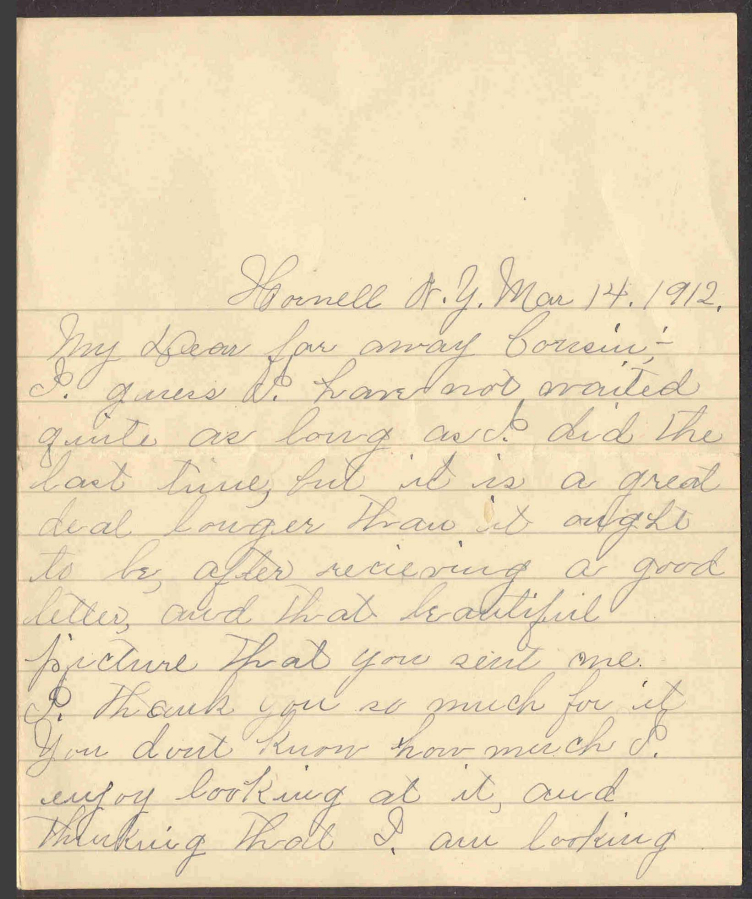 Hornell N.Y. Mar 14. 1912.
My Dear far away Cousin;-
I. guess I. have not waited
quite as long as I. did the
last time, but it is a great
deal longer than it ought
to be, after recieving a good
letter, and that beautiful
picture that you sent me.
I. thank you so much for it
You dont know how much I.
enjoy looking at it, and
thinking that I. am looking